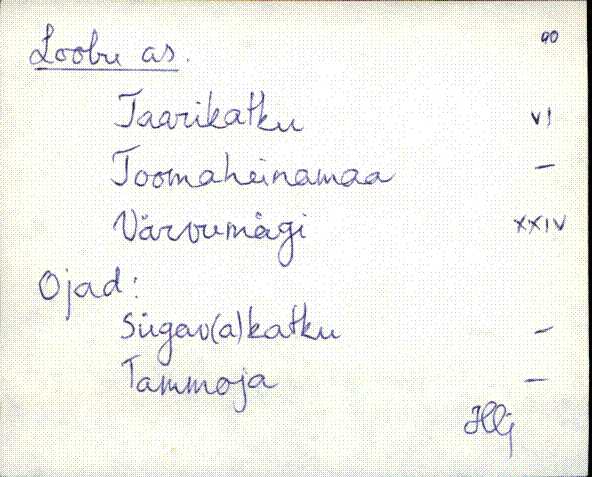 90
Loobu as.
Taarikatku VI
Toomaheinamaa —
Värvumägi XXIV
Ojad:
Sügav(a)katku —
Tammoja —